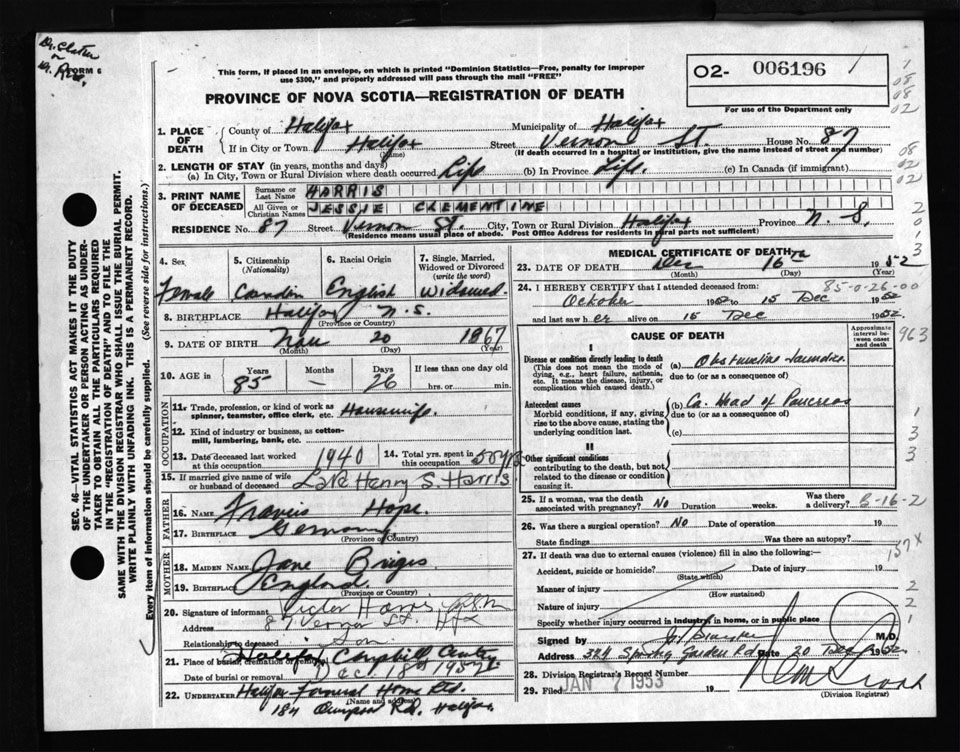 FORM 6
This form, if placed in an envelope, on which is printed "Dominion Statistics—Free, penalty for improper
use $300," and properly addressed will pass through the mail "FREE"
O2- 006196
For use of the Department only
PROVINCE OF NOVA SCOTIA—REGISTRATION OF DEATH
1. PLACE OF DEATH
County of Halifax Municipality of Halifax
If in City or Town Halifax (Name) Street Vernon St. House No. 87
(If death occurred in a hospital or institution, give the name instead of street and number)
2. LENGTH OF STAY (in years, months and days)
(a) In City, Town or Rural Division where death occurred. Life (b) In Province Life. (c) In Canada (if immigrant)
3. PRINT NAME OF DECEASED
Surname or Last Name HARRIS
All Given or Christian Names JESSIE CLEMENTINE
RESIDENCE No. 87 Street Vernon St. City, Town or Rural Division Halifax Province N. S.
(Residence means usual place of abode. Post Office Address for residents in rural parts not sufficient)
4. Sex Female
5. Citizenship (Nationality)
6. Racial Origin English
7. Single, Married, Widowed or Divorced (write the word) Widowed
8. BIRTHPLACE Halifax N. S.
(Province or Country)
9. DATE OF BIRTH Nov 20 1867
(Month) (Day) (Year)
10. AGE Years 85 Months — Days 26 If less than one day hrs. or min.
OCCUPATION
11. Trade, profession, or kind of work as spinner, teamster, office clerk, etc. Housewife.
12. Kind of industry or business, as cotton-mill, lumbering, bank, etc.
13. Date deceased last worked at this occupation 1940
14. Total yrs. spent in this occupation 50 yrs
15. If married give name of wife or husband of deceased Late Henry S. Harris
FATHER
16. Name Francis Hope.
17. BIRTHPLACE Germany
(Province or Country)
MOTHER
18. MAIDEN NAME Jane Briggs
19. BIRTHPLACE England.
(Province or Country)
20. Signature of informant Victor Harris
Address 87 Vernon St. Hfx
Relationship to deceased Son
21. Place of burial, cremation or removal Halifax
Date of burial or removal Dec. 18th 1952
22. UNDERTAKER Halifax Funeral Home Ltd.
(Name and Address)
Halifax.
MEDICAL CERTIFICATE OF DEATH
23. DATE OF DEATH Dec 16 1952
(Month) (Day) (Year)
24. I HEREBY CERTIFY that I attended deceased from:
85-0-26-00
October 1952 to 15 Dec 1952
and last saw her alive on 15 Dec 1952.
CAUSE OF DEATH
Approximate interval between onset and death
I
Disease or condition directly leading to death
(This does not mean the mode of dying, e.g., heart failure, asthenia, etc. It means the disease, injury, or complication which caused death.)
(a) Obstructive Jaundice.
due to (or as a consequence of)
Antecedent causes
Morbid conditions, if any, giving rise to the above cause, stating the underlying condition last.
(b) Ca. Head of Pancreas
due to (or as a consequence of)
(c)
II
Other significant conditions
contributing to the death, but not related to the disease or condition causing it.
25. If a woman, was the death associated with pregnancy? No Duration weeks. Was there a delivery?
B-16-2
26. Was there a surgical operation? No Date of operation 19
State findings Was there an autopsy?
157X
27. If death was due to external causes (violence) fill in also the following:—
Accident, suicide or homicide? (State which) Date of injury 19
Manner of injury (How sustained)
Nature of injury
Specify whether injury occurred in industry, in home, or in public place
Signed by M.D.
Address 324 Spring Garden Rd Date 20 Dec 1952
28. Division Registrar's Record Number
29. Filed JAN 7 1953 19
(Division Registrar)
SEC. 46—VITAL STATISTICS ACT MAKES IT THE DUTY
OF THE UNDERTAKER OR PERSON ACTING AS UNDER-
TAKER TO OBTAIN ALL THE PARTICULARS REQUIRED
IN THE "REGISTRATION OF DEATH" AND TO FILE THE
SAME WITH THE DIVISION REGISTRAR WHO SHALL ISSUE THE BURIAL PERMIT.
WRITE PLAINLY WITH UNFADING INK. THIS IS A PERMANENT RECORD.
Every item of information should be carefully supplied. (See reverse side for instructions.)